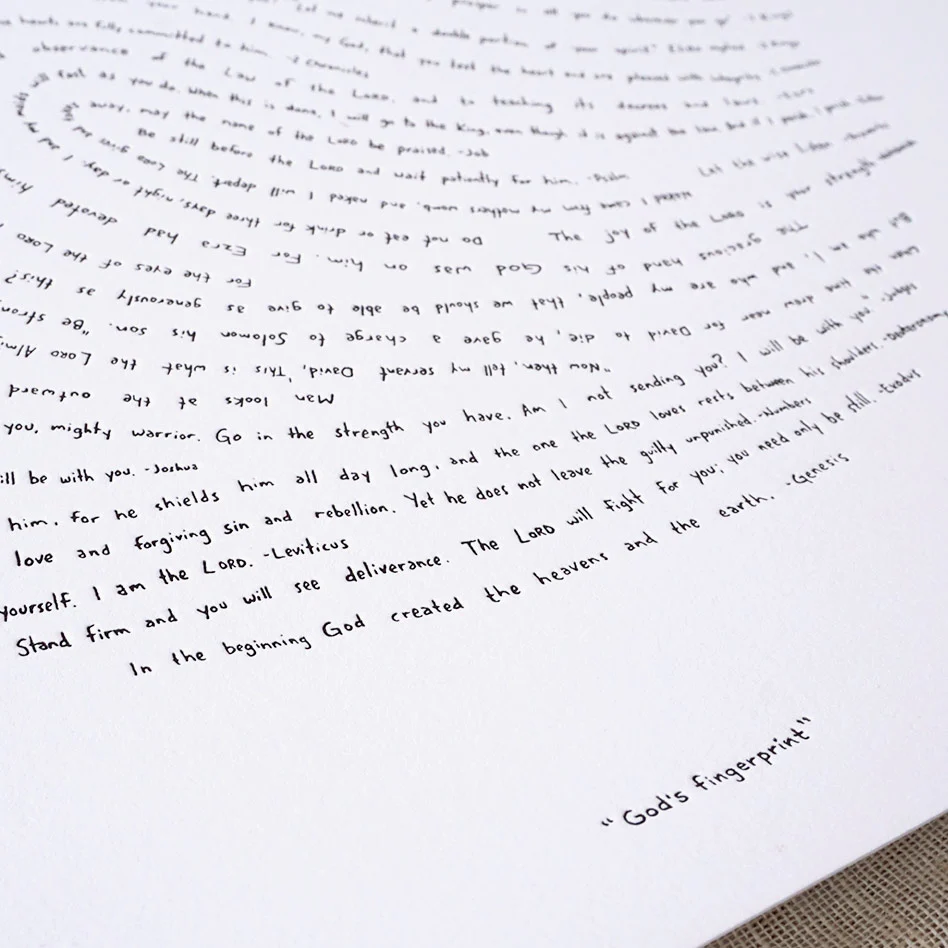 hearts are fully committed to him. -2 Chronicles
observance of the Law of the LORD, and to teaching its decrees and laws.
will fast as you do. When this is done, I will go to the king, even though it is against the law. And if I perish, I perish.
away; may the name of the LORD be praised. -Job
Be still before the LORD and wait patiently for him. -Psalm
Let the wise listen
Naked I came from my mothers womb, and naked I will depart. The LORD gives
The joy of the LORD is your strength
Do not eat or drink for three days, night or day. I and my maids
The gracious hand of his God was on him. For Ezra had devoted him
For the eyes of the LORD
But who am I, and who are my people, that we should be able to give as generously as this?
When the time drew near for David to die, he gave a charge to Solomon his son. "Be strong
"Now then, tell my servant David, 'This is what the LORD Almi
Man looks at the outward
you, mighty warrior. Go in the strength you have. Am I not sending you? I will be with you." -Judges
ill be with you. -Joshua
him, for he shields him all day long, and the one the LORD loves rests between his shoulders. -Deuteronomy
love and forgiving sin and rebellion. Yet he does not leave the guilty unpunished. -Numbers
yourself. I am the LORD. -Leviticus
Stand firm and you will see deliverance. The LORD will fight for you; you need only be still. -Exodus
In the beginning God created the heavens and the earth. -Genesis
"God's fingerprint"